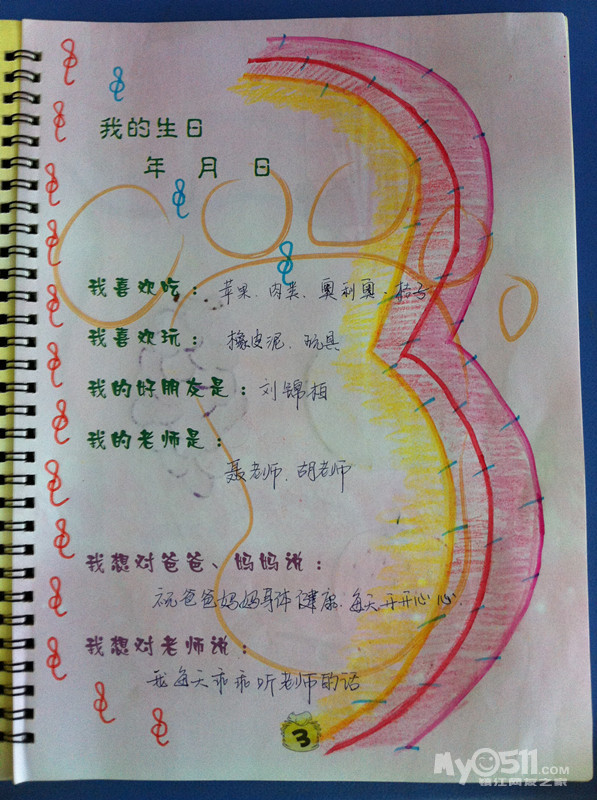 我的生日
年 月 日
我喜欢吃：苹果、肉类、奥利奥、桔子
我喜欢玩：橡皮泥、玩具
我的好朋友是：刘锦柏
我的老师是：
聂老师、胡老师
我想对爸爸、妈妈说：
祝爸爸妈妈身体健康、每天开开心心.
我想对老师说：
我每天乖乖听老师的话
3
My0511.com
镇江网友之家